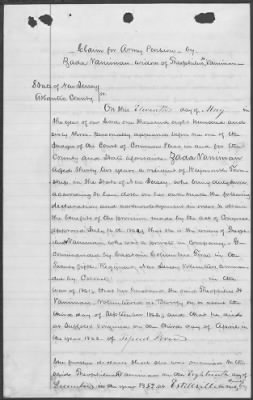 Claim for Army Pension - by
Zada Vanaman widow of Theophilus Vanaman
State of New Jersey
Atlantic County ss
On this Eleventh day of May
in the year of our Lord one thousand eight hundred and
sixty three personally appeared before me one of the
Judges of the Court of Common Pleas in and for the
County and State aforesaid Zada Vanaman
Aged thirty years a resident of Town
ship, in the State of New Jersey who being duly sworn
according to law does on her oath make the following
declaration and in order to obtain
the benefits of the provision made by the act of Congress
approved July 14th 1862, that she is the widow of Theop
Vanaman, who was a private in Company G
commanded by Captain in the
Twenty fifth Regiment New Jersey Volunteers comman
ded by Colonel in the
war of 1861, that her husband the said Theophilus
Vanaman Volunteered at on or about the
third day of September 1862, and that he died
at Suffolk Virginia on the third day of April in
the year 1863 of Fever
She further declares that she was married to the
said Theophilus Vanaman on the Eighteenth day of
December in the year 1852 at